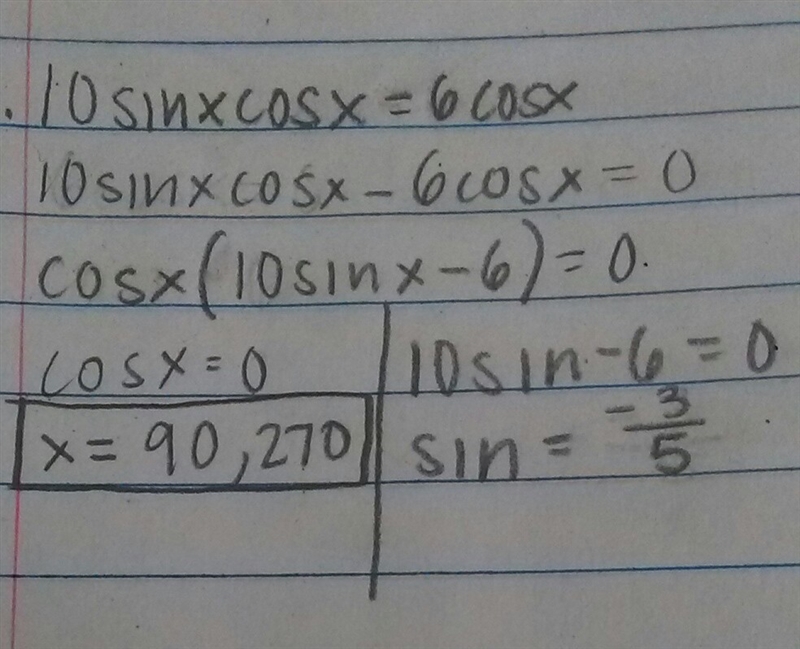 . 10 sin x cos x = 6 cos x
10 sin x cos x - 6 cos x = 0
cos x (10 sin x - 6) = 0.
cos x = 0
x = 90, 270
10 sin - 6 = 0
sin = -3/5